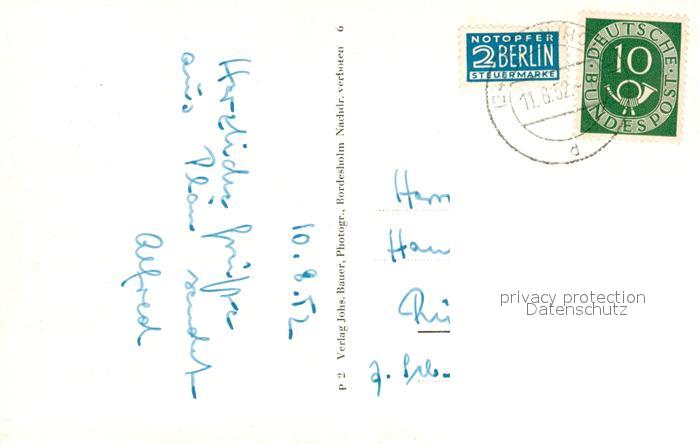 10.8.52
Herzliche Grüße
aus Plön sendet
Alfred
P 2 Verlag Johs. Bauer, Photogr., Bordesholm Nachdr. verboten 6
NOTOPFER
2 BERLIN
STEUERMARKE
DEUTSCHE
BUNDESPOST
10
11.8.52
d
Herrn
Han
privacy protection
Datenschutz